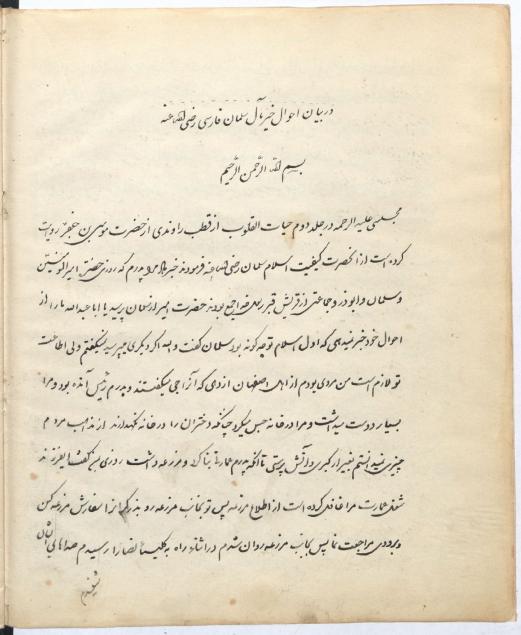 در بیان احوال خیر مآل سلمان فارسی رضی الله عنه
بسم الله الرحمن الرحیم
مجلسی علیه الرحمه در جلد دوم حیات القلوب از قطب راوندی از حضرت موسی بن جعفر روایت
کرده است از آنحضرت کیفیت اسلام سلمان رضی الله عنه فرمودند خبر داد مرا پدرم که روزی حضرت امیرالمؤمنین
و سلمان و ابوذر و جماعتی از قریش نزد قبر رسول خدا جمع بودند حضرت امیر از سلمان پرسید یا ابا عبدالله ما را از
احوال خود خبر نمیدهی که اول اسلام تو چه گونه بود سلمان گفت والله اگر دیگری میپرسید نمیگفتم ولی اطاعت
تو لازم است من مردی بودم از اهل اصفهان از دهی که آن را جی میگفتند و پدرم رئیس آن ده بود و مرا
بسیار دوست میداشت و مرا در خانه حبس میکرد چنانکه دختران را در خانه نگهدارند از مذهب مردم
چیزی نمیدانستم بغیر از گبری و آتش پرستی تا آنکه پدرم عمارتی بنا کرد و مزرعه داشت روزی بمن گفت ای فرزند
شغل عمارت مرا غافل کرده است از اطلاع مزرعه پس تو بجانب مزرعه رو و بزرگران را سفارش مزرعه کن
و بزودی مراجعت نما پس بجانب مزرعه روان شدم در اثناء راه به کلیسای نصاری رسیدم صداهای ایشان
شنیدم